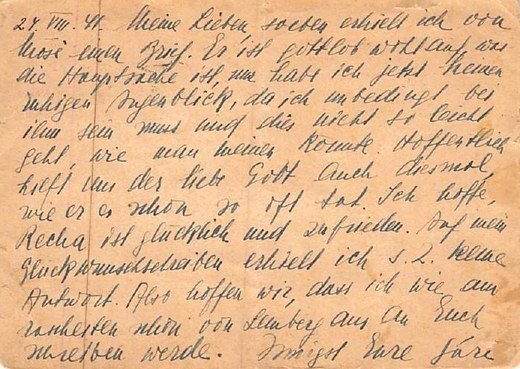 24. VIII. 41. Meine Lieben, soeben erhielt ich von
Mosé einen Brief. Er ist gottlob wohlauf, was
die Hauptsache ist, nur habe ich jetzt keinen
ruhigen Augenblick, da ich unbedingt bei
ihm sein muss und dies nicht so leicht
geht, wie man meinen könnte. Hoffentlich
hilft uns der liebe Gott auch diesmal,
wie er es schon so oft tat. Ich hoffe,
Recha ist glücklich und zufrieden. Auf mein
Glückwunschschreiben erhielt ich s. Z. keine
Antwort. Also hoffen wir, dass ich wie am
raschesten schon von Lemberg aus an Euch
schreiben werde. Innigst Eure